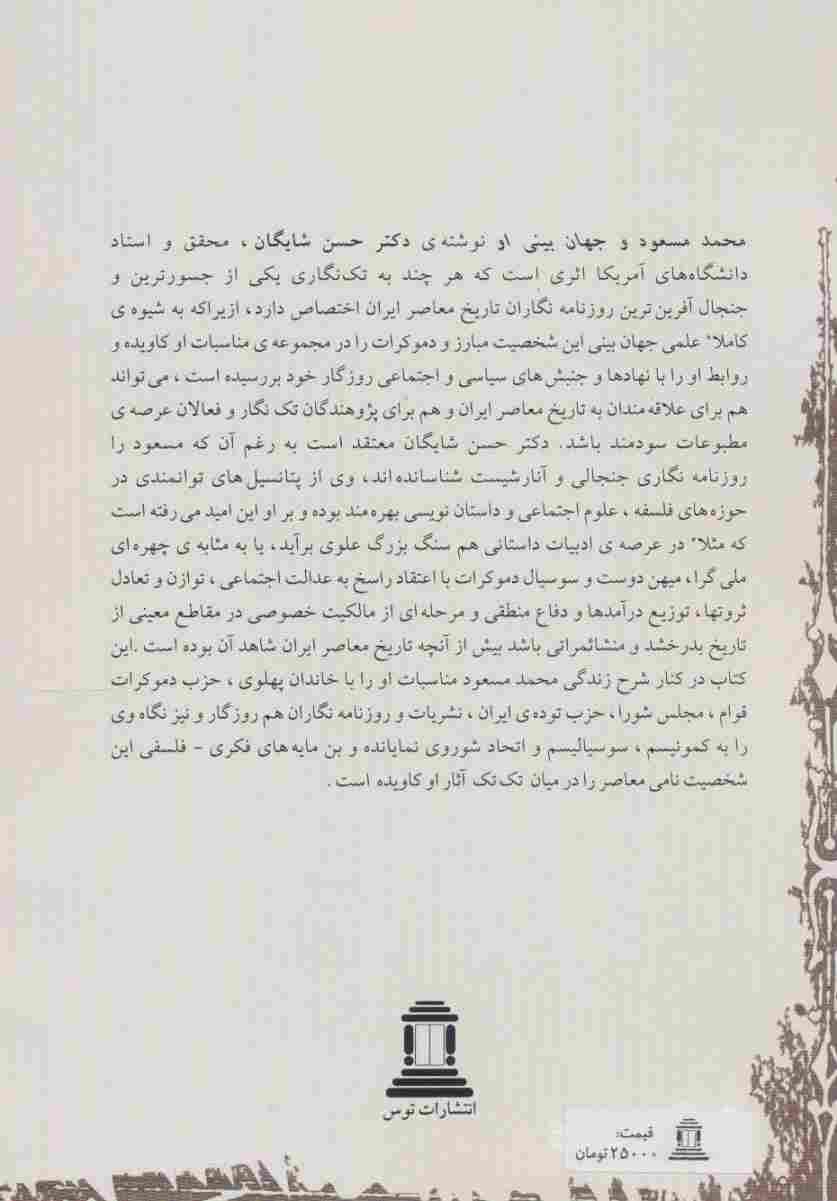 محمد مسعود و جهان بینی او نوشته ی دکتر حسن شایگان ، محقق و استاد
دانشگاه‌های آمریکا اثری است که هر چند به تک‌نگاری یکی از جسورترین و
جنجال آفرین ترین روزنامه نگاران تاریخ معاصر ایران اختصاص دارد ، ازیراکه به شیوه ی
کاملاً علمی جهان بینی این شخصیت مبارز و دموکرات را در مجموعه ی مناسبات او کاویده و
روابط او را با نهادها و جنبش های سیاسی و اجتماعی روزگار خود بررسیده است ، می‌تواند
هم برای علاقه مندان به تاریخ معاصر ایران و هم برای پژوهندگان تک نگار و فعالان عرصه ی
مطبوعات سودمند باشد. دکتر حسن شایگان معتقد است به رغم آن که مسعود را
روزنامه نگاری جنجالی و آنارشیست شناسانده اند ، وی از پتانسیل های توانمندی در
حوزه های فلسفه ، علوم اجتماعی و داستان نویسی بهره مند بوده و بر او این امید می رفته است
که مثلاً در عرصه ی ادبیات داستانی هم سنگ بزرگ علوی برآید ، یا به مثابه ی چهره ای
ملی گرا ، میهن دوست و سوسیال دموکرات با اعتقاد راسخ به عدالت اجتماعی ، توازن و تعادل
ثروتها ، توزیع درآمدها و دفاع منطقی و مرحله ای از مالکیت خصوصی در مقاطع معینی از
تاریخ بدرخشد و منشائمراتی باشد بیش از آنچه تاریخ معاصر ایران شاهد آن بوده است .این
کتاب در کنار شرح زندگی محمد مسعود مناسبات او را با خاندان پهلوی ، حزب دموکرات
قوام ، مجلس شورا ، حزب توده ی ایران ، نشریات و روزنامه نگاران هم روزگار و نیز نگاه وی
را به کمونیسم ، سوسیالیسم و اتحاد شوروی نمایانده و بن مایه های فکری - فلسفی این
شخصیت نامی معاصر را در میان تک تک آثار او کاویده است .
انتشارات توس
قیمت:
۲۵۰۰۰ تومان